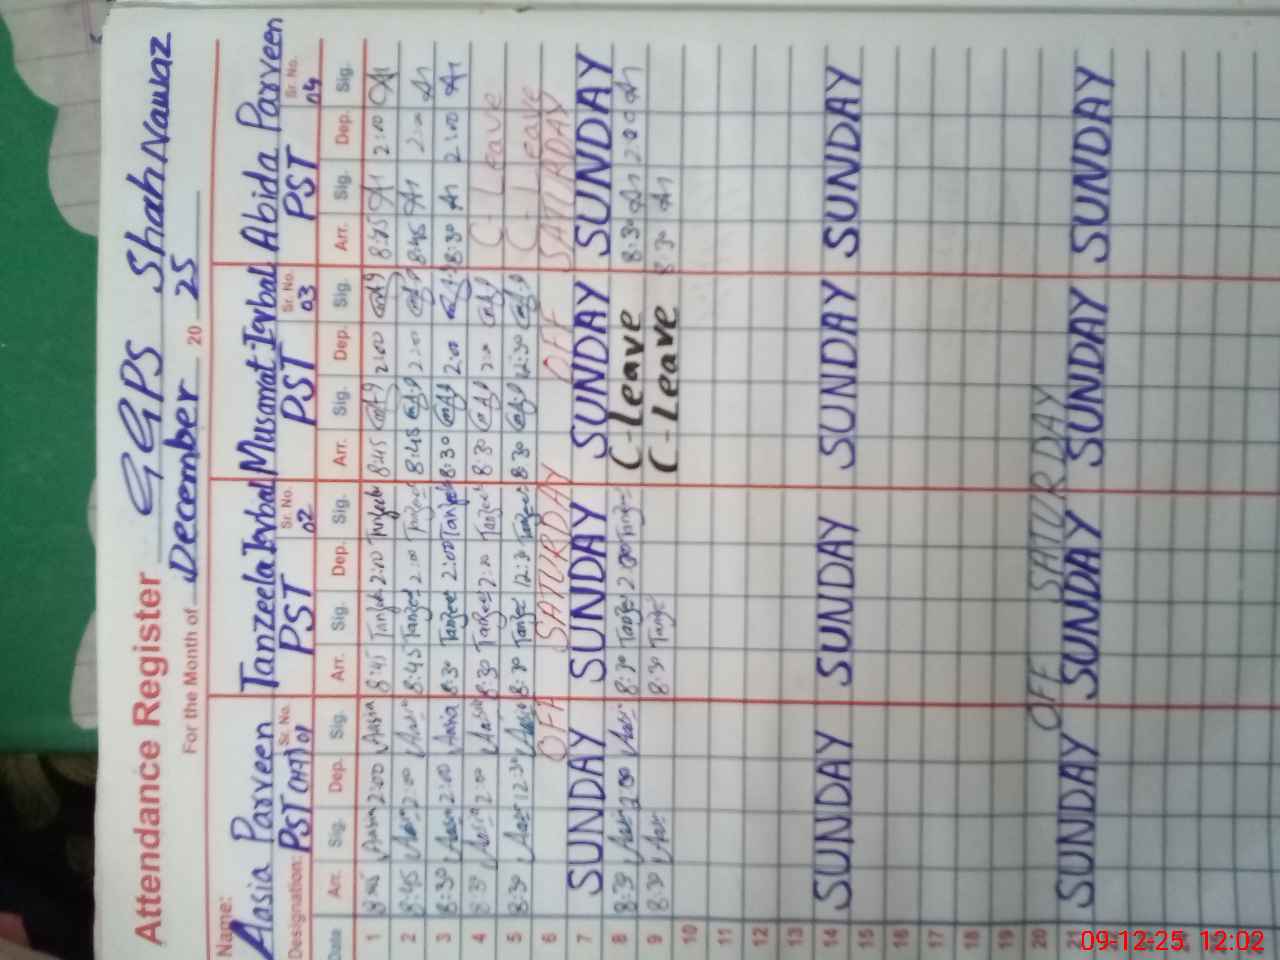 Attendance Register GGPS Shah Nawaz
For the Month of December 20 25
Name: Aasia Parveen Tanzeela Iqbal Musarrat Iqbal Abida Parveen
Designation: PST (HT) Sr. No. 01 PST Sr. No. 02 PST Sr. No. 03 PST Sr. No. 04
Date Arr. Sig. Dep. Sig. Arr. Sig. Dep. Sig. Arr. Sig. Dep. Sig. Arr. Sig. Dep. Sig.
1 8:45 Aasia 2:00 Aasia 8:45 Tanzeela 2:00 Tanzeela 8:45 2:00 8:45 2:00
2 8:45 2:00 8:45 2:00 8:45 2:00 8:45 2:00
3 8:30 2:00 Aasia 8:30 Tanzee 2:00 Tanzeel 8:30 2:00 8:30 2:00
4 8:30 2:00 Aasia 8:30 Tanzee 2:00 Tanzeel 8:30 2:00 C-Leave
5 8:30 12:30 8:30 Tanzee 12:30 8:30 12:30 C-Leave
6 OFF SATURDAY OFF SATURDAY
7 SUNDAY SUNDAY SUNDAY SUNDAY
8 8:30 2:00 8:30 Tanzee 2:00 Tanzee C-Leave 8:30 2:00
9 8:30 8:30 Tanzee C-Leave 8:30
10
11
12
13
14 SUNDAY SUNDAY SUNDAY SUNDAY
15
16
17
18
19
20 OFF SATURDAY
21 SUNDAY SUNDAY SUNDAY SUNDAY
09-12-25 12:02